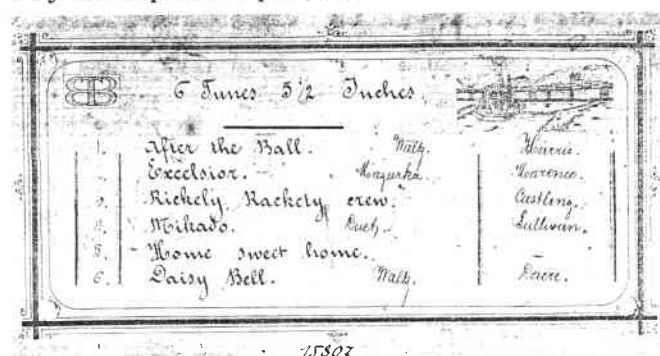 6 Tunes 5 1/2 Inches.
1. After the Ball. Waltz. Harris.
Excelsior. Mazurka. Marenco.
3. Rickely Rackety crew. Castling.
4. Mikado. Duet. Sullivan.
5. Home sweet home. –
6. Daisy Bell. Waltz. Dacre.
15803